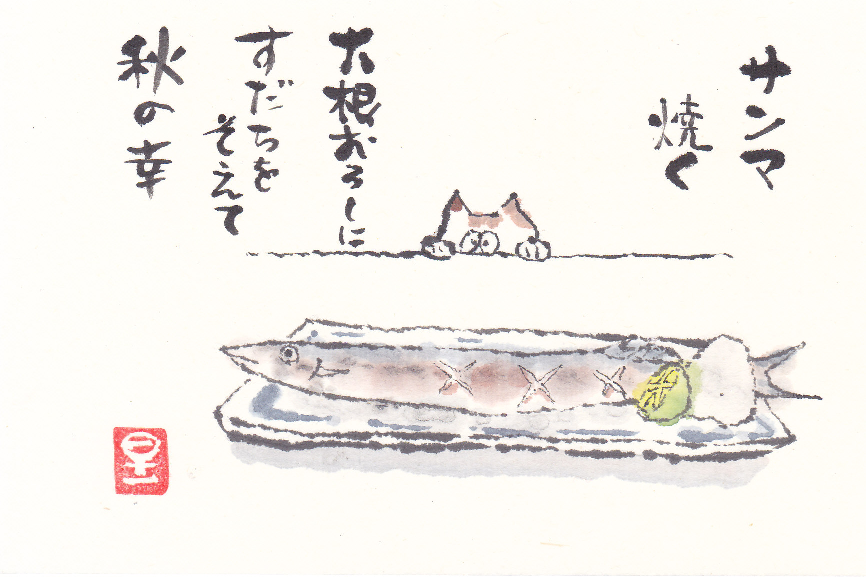 サンマ
焼く
大根おろしに
すだちを
そえて
秋の幸